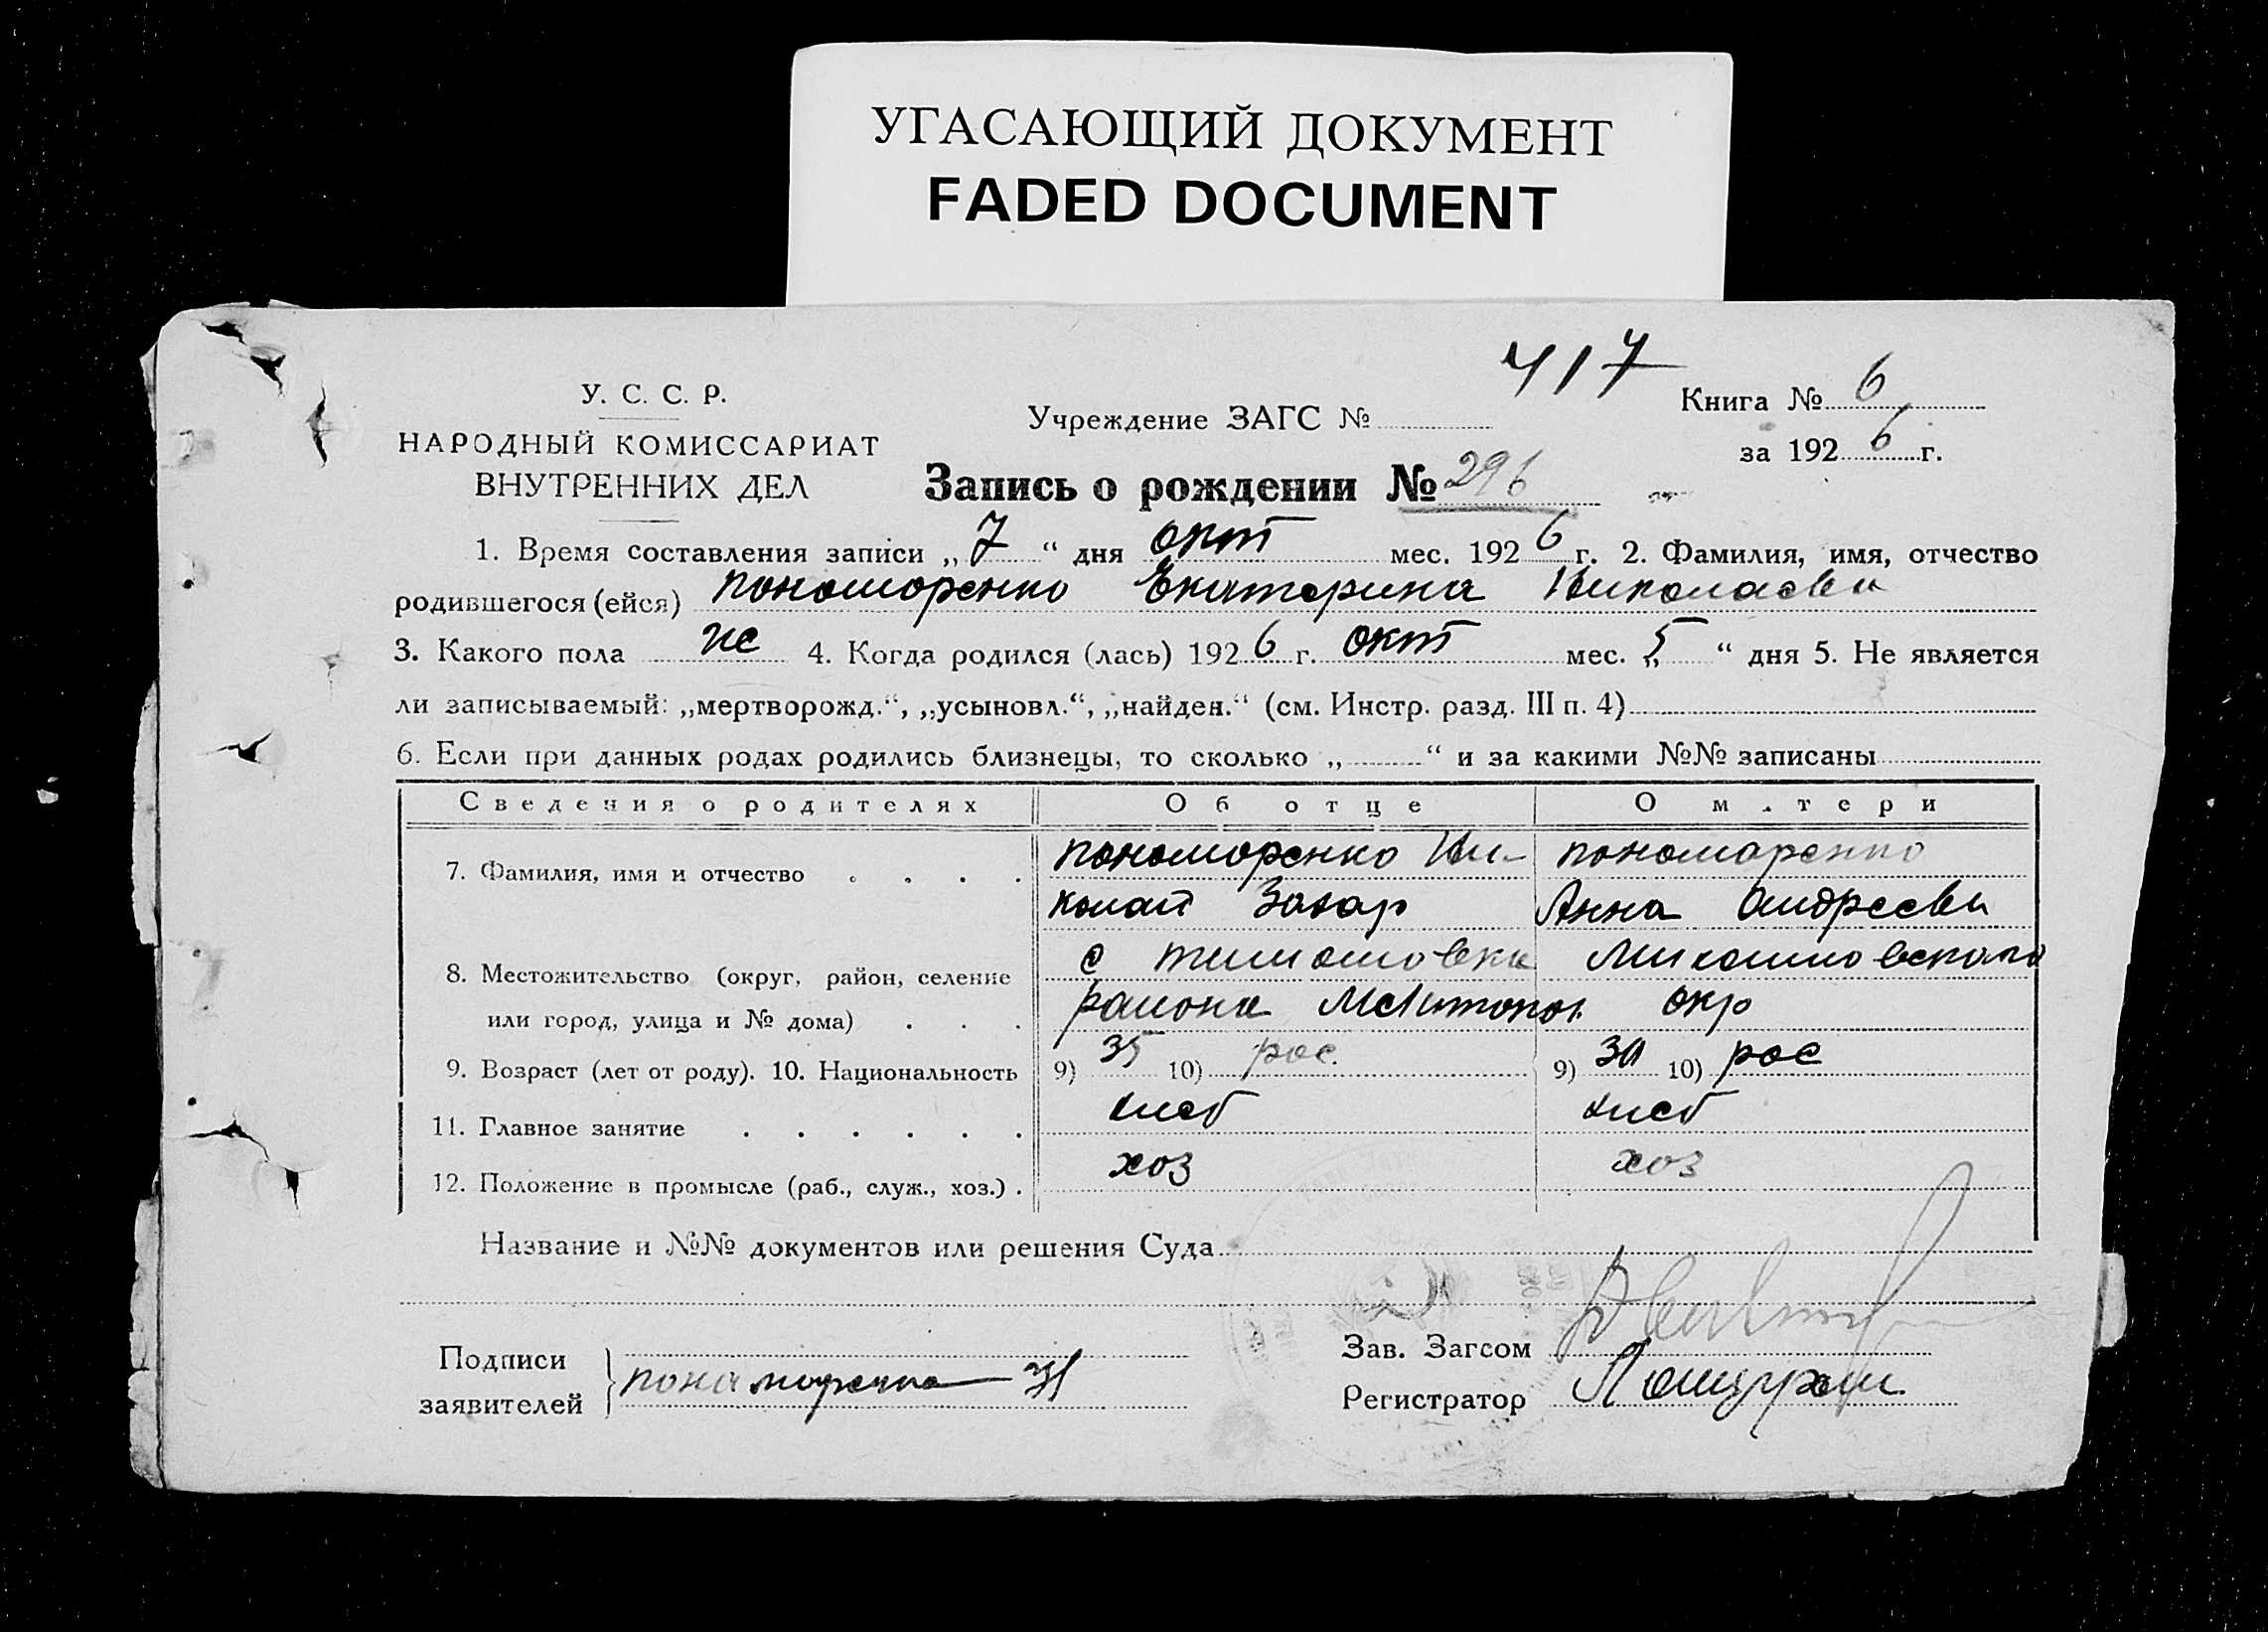 УГАСАЮЩИЙ ДОКУМЕНТ
FADED DOCUMENT
417
У. С. С. Р.
НАРОДНЫЙ КОМИССАРИАТ
ВНУТРЕННИХ ДЕЛ
Учреждение ЗАГС №
Книга № 6
за 1926 г.
Запись о рождении № 296
1. Время составления записи „ 7 “ дня окт мес. 1926 г. 2. Фамилия, имя, отчество
родившегося (ейся) пономоренко Екатерина Николаевн
3. Какого пола же 4. Когда родился (лась) 1926 г. окт мес. „ 5 “ дня 5. Не является
ли записываемый: „мертворожд.“, „усыновл.“, „найден.“ (см. Инстр. разд. III п. 4)
6. Если при данных родах родились близнецы, то сколько „ “ и за какими №№ записаны
Сведения о родителях Об отце О м.тери
7. Фамилия, имя и отчество пономоренко Ни- пономаренко
колай Захар Анна Андреевн
8. Местожительство (округ, район, селение с тимошовка
или город, улица и № дома) района Мелитопол окр
9. Возраст (лет от роду). 10. Национальность 9) 35 10) рос. 9) 30 10) рос
11. Главное занятие хлеб хлеб
12. Положение в промысле (раб., служ., хоз.) хоз хоз
Название и №№ документов или решения Суда
Подписи
заявителей понаморенко
Зав. Загсом
Регистратор